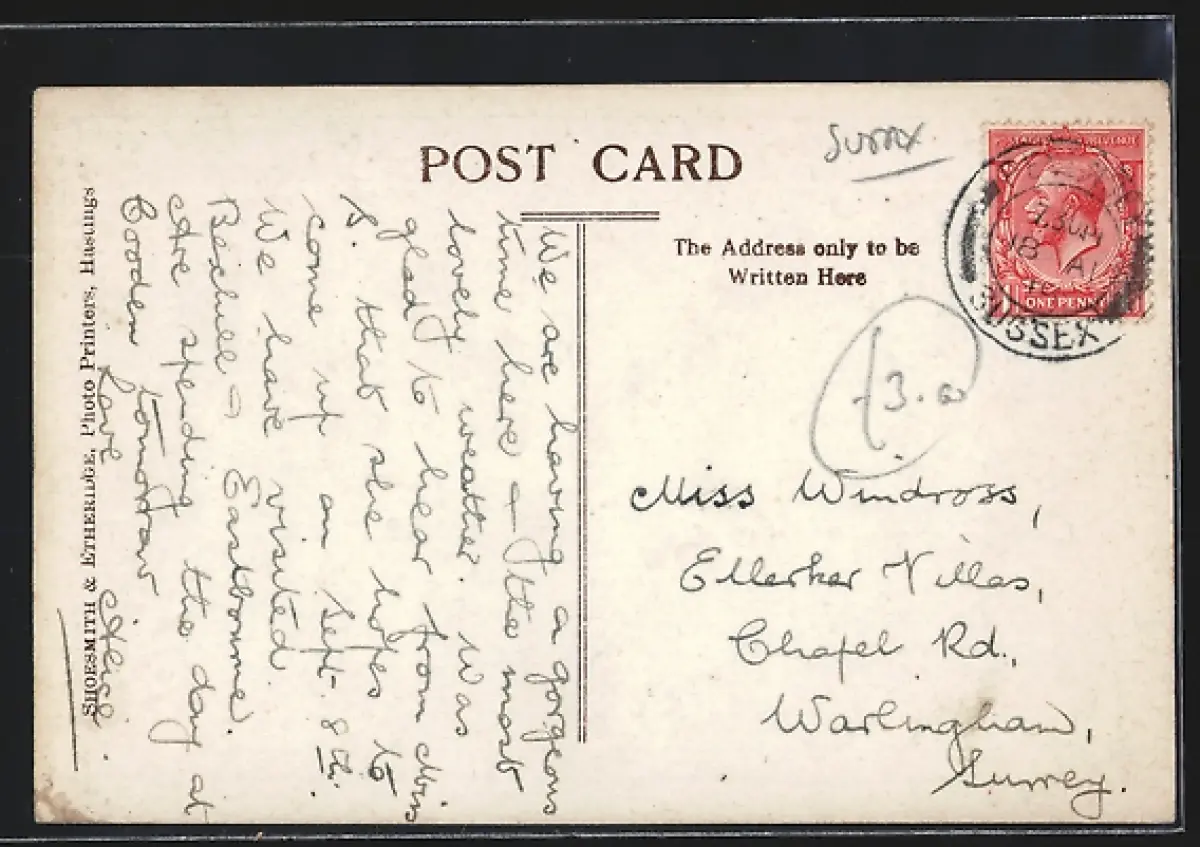 POST CARD
The Address only to be
Written Here
SUSSEX
ONE PENNY
Miss Windross,
Ellerker Villas,
Chapel Rd.,
Warlingham,
Surrey.
We are having a gorgeous
time here & the most
lovely weather. Was
glad to hear from Mrs
B. that she hopes to
come up on Sept. 8th.
We have visited
Bexhill & Eastbourne.
Are spending the day at
Cooden tomorrow
Love
SHOESMITH & ETHERIDGE, Photo Printers, Hastings